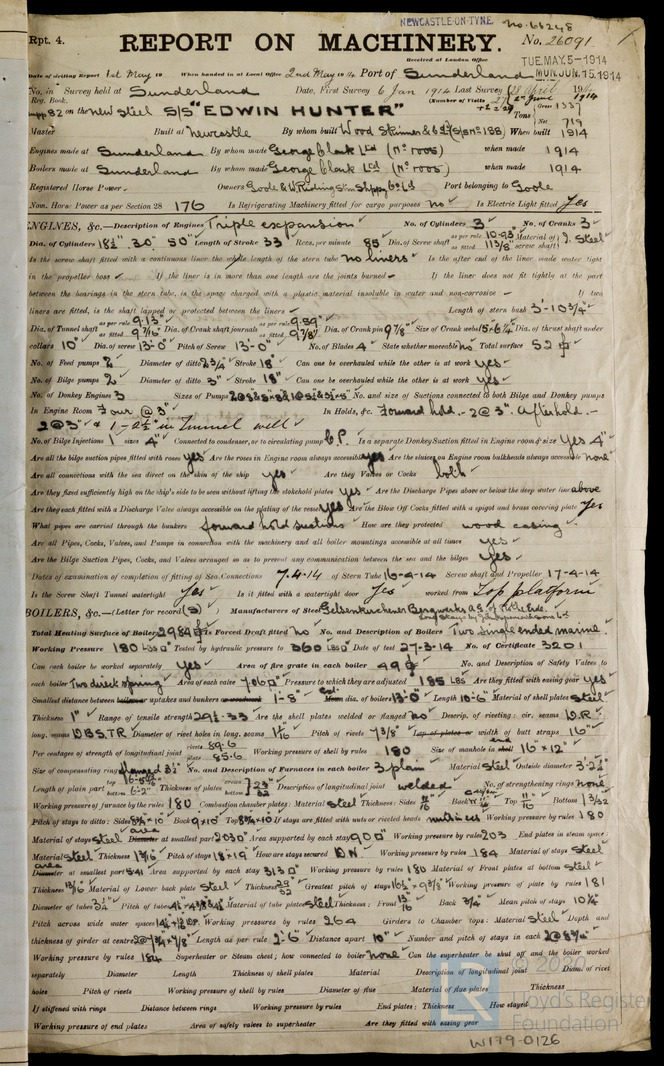 NEWCASTLE-ON-TYNE No. 66248
Rpt. 4. REPORT ON MACHINERY. No. 26091
Received at London Office TUE. MAY. 5-1914
Date of writing Report 1st May 19 When handed in at Local Office 2nd May 1914 Port of Sunderland MON. JUN. 15. 1914
No. in Survey held at Sunderland Date, First Survey 6 Jan 1914 Last Survey April 1914
Reg. Book. (Number of Visits
82 on the new Steel S/S "EDWIN HUNTER" Tons Gross 1337 Net 719
Master Built at Newcastle By whom built Wood Skinner & Co Ld (S/S No 188) When built 1914
Engines made at Sunderland By whom made George Clark Ltd (No 1005) when made 1914
Boilers made at Sunderland By whom made George Clark Ltd (No 1005) when made 1914
Registered Horse Power Owners Goole & W Riding Stm Shipp Co Ld Port belonging to Goole
Nom. Horse Power as per Section 28 176 Is Refrigerating Machinery fitted for cargo purposes no Is Electric Light fitted Yes
ENGINES, &c.—Description of Engines Triple expansion No. of Cylinders 3 No. of Cranks 3
Dia. of Cylinders 18½". 30". 50" Length of Stroke 33 Revs. per minute 85 Dia. of Screw shaft as per rule 10.93 as fitted 11 3/8" Material of screw shaft I. Steel
Is the screw shaft fitted with a continuous liner the whole length of the stern tube no liners Is the after end of the liner made water tight
in the propeller boss If the liner is in more than one length are the joints burned If the liner does not fit tightly at the part
between the bearings in the stern tube, is the space charged with a plastic material insoluble in water and non-corrosive If two
liners are fitted, is the shaft lapped or protected between the liners Length of stern bush 3'-10¾"
Dia. of Tunnel shaft as per rule 9.13" as fitted 9 7/16" Dia. of Crank shaft journals as per rule 9.59" as fitted 9 7/8" Dia. of Crank pin 9 7/8" Size of Crank webs 15-6¼ Dia. of thrust shaft under
collars 10" Dia. of screw 13'-0" Pitch of Screw 13'-0" No. of Blades 4 State whether moveable no Total surface 52
No. of Feed pumps 2 Diameter of ditto 2¾" Stroke 18" Can one be overhauled while the other is at work yes
No. of Bilge pumps 2 Diameter of ditto 3" Stroke 18" Can one be overhauled while the other is at work yes
No. of Donkey Engines 3 Sizes of Pumps No. and size of Suctions connected to both Bilge and Donkey pumps
In Engine Room Four @ 3" In Holds, &c. Forward hold - 2@3". After hold.-
2@3" & 1-2½" in tunnel well
No. of Bilge Injections 1 sizes 4" Connected to condenser, or to circulating pump C.P. Is a separate Donkey Suction fitted in Engine room & size Yes 4"
Are all the bilge suction pipes fitted with roses yes Are the roses in Engine room always accessible yes Are the sluices on Engine room bulkheads always accessible none
Are all connections with the sea direct on the skin of the ship yes Are they Valves or Cocks both
Are they fixed sufficiently high on the ship's side to be seen without lifting the stokehold plates yes Are the Discharge Pipes above or below the deep water line above
Are they each fitted with a Discharge Valve always accessible on the plating of the vessel yes Are the Blow Off Cocks fitted with a spigot and brass covering plate Yes
What pipes are carried through the bunkers forward hold suctions How are they protected wood casing
Are all Pipes, Cocks, Valves, and Pumps in connection with the machinery and all boiler mountings accessible at all times yes
Are the Bilge Suction Pipes, Cocks, and Valves arranged so as to prevent any communication between the sea and the bilges yes
Dates of examination of completion of fitting of Sea Connections 7.4.14 of Stern Tube 16-4-14 Screw shaft and Propeller 17-4-14
Is the Screw Shaft Tunnel watertight Yes Is it fitted with a watertight door Yes worked from Top platform
BOILERS, &c.—(Letter for record (S)) Manufacturers of Steel Gelsenkirchener Bergwerks A.G.
Total Heating Surface of Boilers 2984 Is Forced Draft fitted no No. and Description of Boilers Two single ended marine
Working Pressure 180 Lbs Tested by hydraulic pressure to 360 Lbs Date of test 27-3-14 No. of Certificate 3201
Can each boiler be worked separately yes Area of fire grate in each boiler 49 No. and Description of Safety Valves to
each boiler Two direct spring Area of each valve 7.06 Pressure to which they are adjusted 185 Lbs Are they fitted with easing gear yes
Smallest distance between boilers or uptakes and bunkers or woodwork 1'-8" Mean dia. of boilers 13'-0" Length 10'-6" Material of shell plates Steel
Thickness 1" Range of tensile strength 29½-33 Are the shell plates welded or flanged no Descrip. of riveting: cir. seams D.R.
long. seams D.B.S.T.R Diameter of rivet holes in long. seams 1 1/16" Pitch of rivets 7 3/8" Lap of plates or width of butt straps 16"
Per centages of strength of longitudinal joint rivets 89.6 plate 85.6 Working pressure of shell by rules 180 Size of manhole in shell end 16" x 12"
Size of compensating ring flanged 3½" No. and Description of Furnaces in each boiler 3 plain Material Steel Outside diameter 3'-2¼"
Length of plain part top bottom 6'-2" Thickness of plates crown bottom 23/32 Description of longitudinal joint welded No. of strengthening rings none
Working pressure of furnace by the rules 180 Combustion chamber plates: Material Steel Thickness: Sides 11/16" Back Top 11/16 Bottom 13/32
Pitch of stays to ditto: Sides 8¾ x 10 Back 9 x 10" Top 8¾ x 10" If stays are fitted with nuts or riveted heads nuts Working pressure by rules 180
Material of stays Steel Diameter area at smallest part 2.030 Area supported by each stay 90 Working pressure by rules 203 End plates in steam space:
Material Steel Thickness 13/16" Pitch of stays 18 x 19" How are stays secured D.N. Working pressure by rules 184 Material of stays Steel
Diameter area at smallest part Area supported by each stay 313 Working pressure by rules 180 Material of Front plates at bottom Steel
Thickness 13/16 Material of Lower back plate Steel Thickness 29/32 Greatest pitch of stays Working pressure of plate by rules 181
Diameter of tubes 3¼ Pitch of tubes Material of tube plates Steel Thickness: Front 13/16 Back ¾" Mean pitch of stays 10¼"
Pitch across wide water spaces Working pressures by rules 264 Girders to Chamber tops: Material Steel Depth and
thickness of girder at centre 2@7¾ x 7/8" Length as per rule 2'-6" Distance apart 10" Number and pitch of stays in each 2@8¾"
Working pressure by rules 184 Superheater or Steam chest; how connected to boiler none Can the superheater be shut off and the boiler worked
separately Diameter Length Thickness of shell plates Material Description of longitudinal joint Diam. of rivet
holes Pitch of rivets Working pressure of shell by rules Diameter of flue Material of flue plates Thickness
If stiffened with rings Distance between rings Working pressure by rules End plates: Thickness How stayed
Working pressure of end plates Area of safety valves to superheater Are they fitted with easing gear
© 2020
Lloyd's Register
Foundation
W179-0126